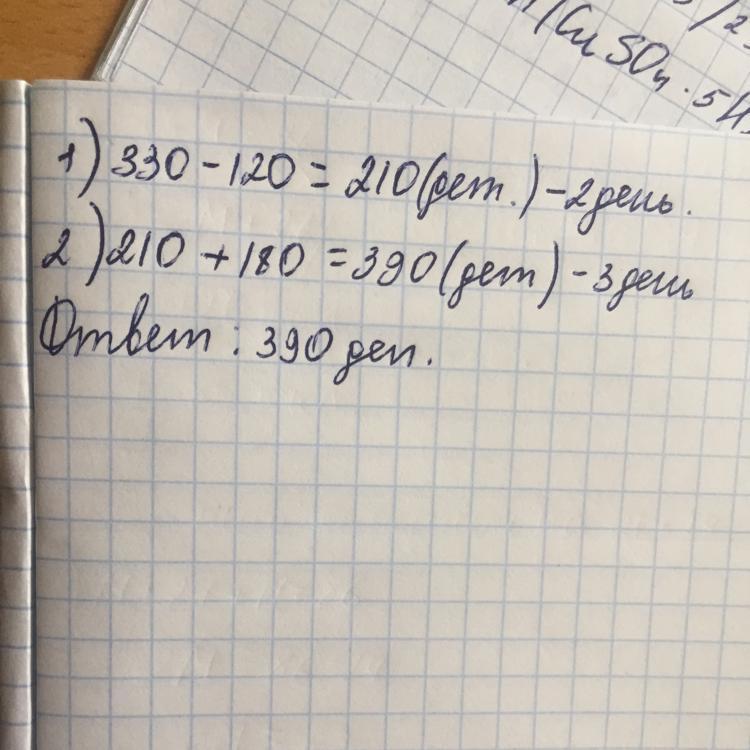 CuSO₄ · 5H
1) 330 - 120 = 210 (дет.) - 2 день.
2) 210 + 180 = 390 (дет) - 3 день
Ответ : 390 деп.